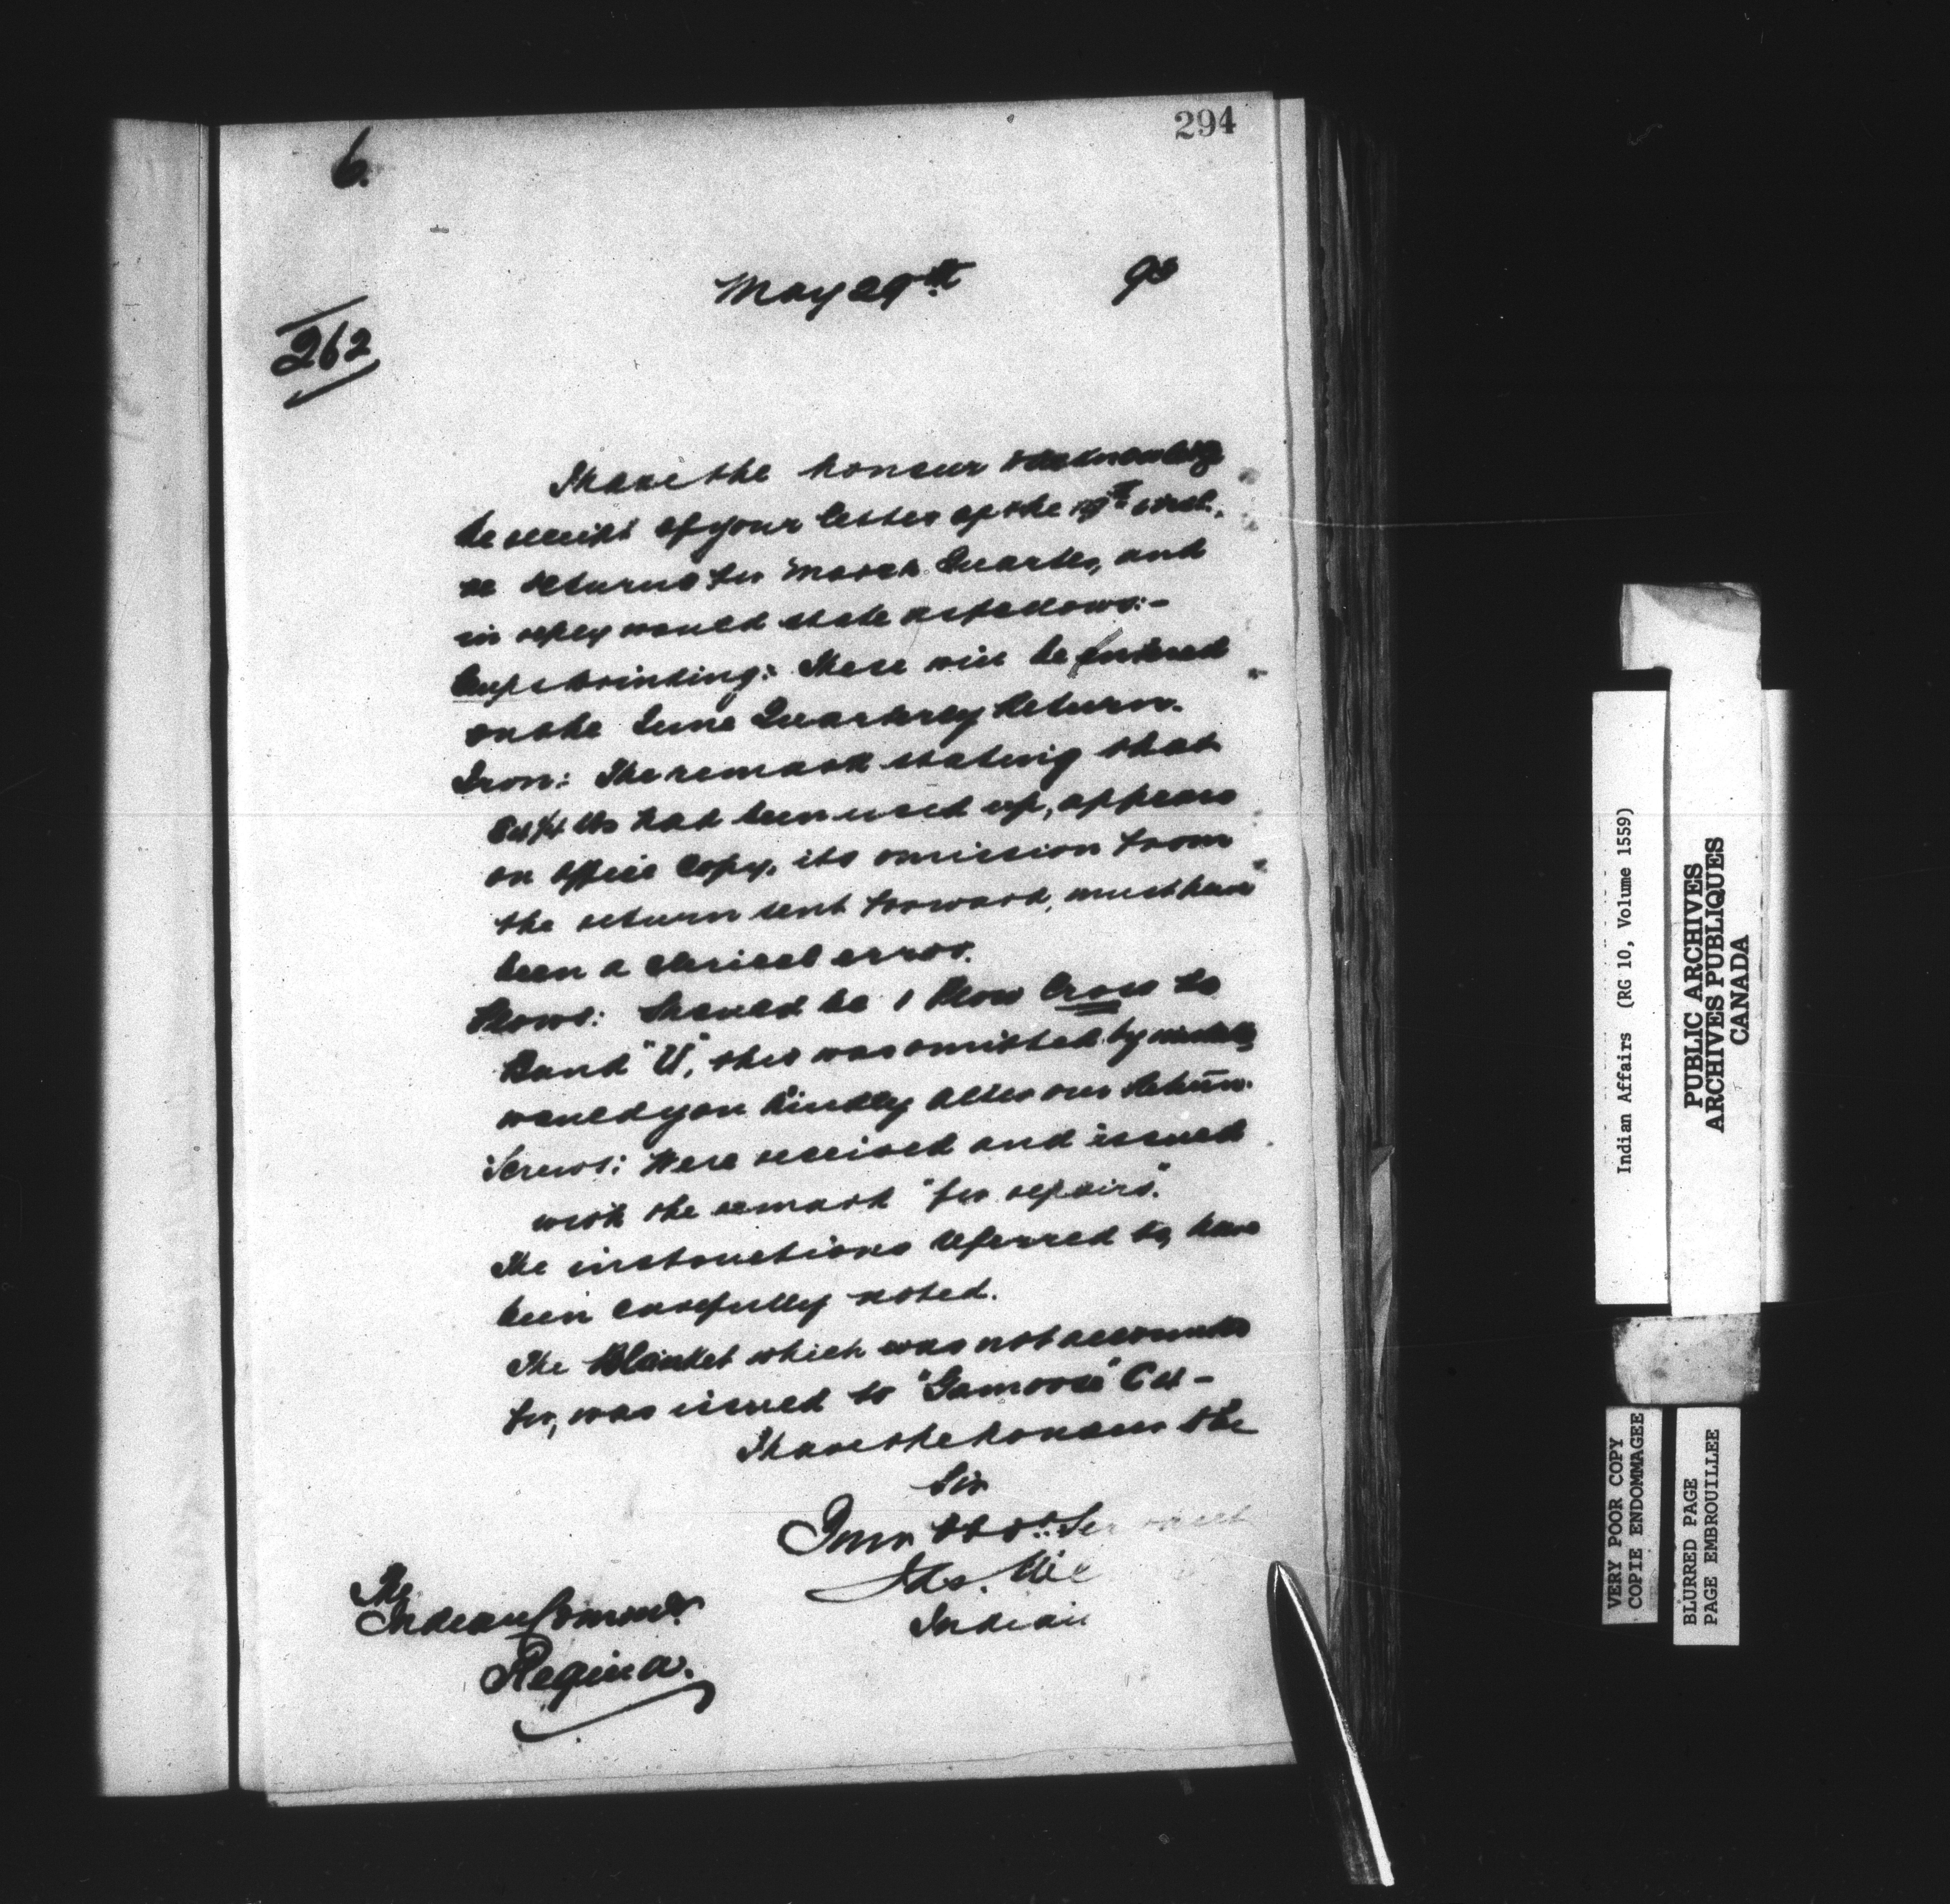 294
6.
May 29th 93
262
I have the honour to acknowledge
the receipt of your letter of the 19th inst.
re returns for March Quarter, and
in reply would state as follows:-
printing: These will be entered
on the June Quarterly Return.
Iron: The remark stating that
lbs had been used up, appears
on Office Copy, its omission from
the return sent forward, must have
been a clerical error.
Plows: Should be 1 Plow Cross to
Band "U", this was omitted by mistake,
would you kindly alter our Return.
Screws: Were received and issued
with the remark "for repairs".
The instructions referred to, have
been carefully noted.
The Blanket which was not accounted
for, was issued to "Gamoose"
I have the honour to be
Sir
Your Obdt. Servant
Indian
The
Indian Commr.
Regina.
Indian Affairs (RG 10, Volume 1559)
PUBLIC ARCHIVES
ARCHIVES PUBLIQUES
CANADA
VERY POOR COPY
COPIE ENDOMMAGEE
BLURRED PAGE
PAGE EMBROUILLEE